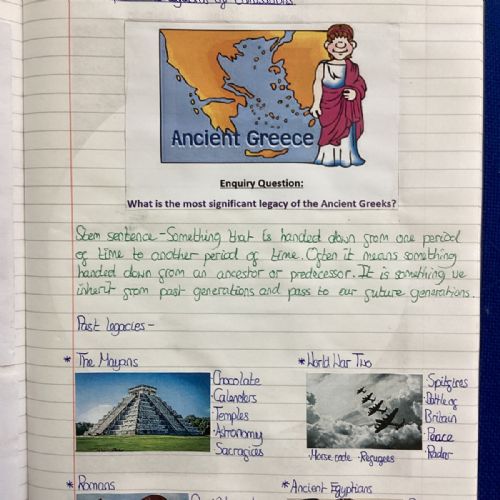 Ancient Greece
Enquiry Question:
What is the most significant legacy of the Ancient Greeks?
Stem sentence - Something that is handed down from one period
of time to another period of time. Often it means something
handed down from an ancestor or predecessor. It is something we
inherit from past generations and pass to our future generations.
Past legacies -
* The Mayans
· Chocolate
· Calenders
· Temples
· Astronomy
Sacragices
* World War Two
Spitfires
· Battle of
Britain
· Peace
· Radar
· Morse code · Refugees
* Romans
* Ancient Egyptians